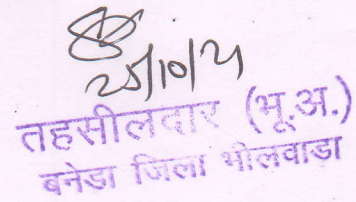 25/10/21
तहसीलदार (भू.अ.)
बनेडा जिला भीलवाडा